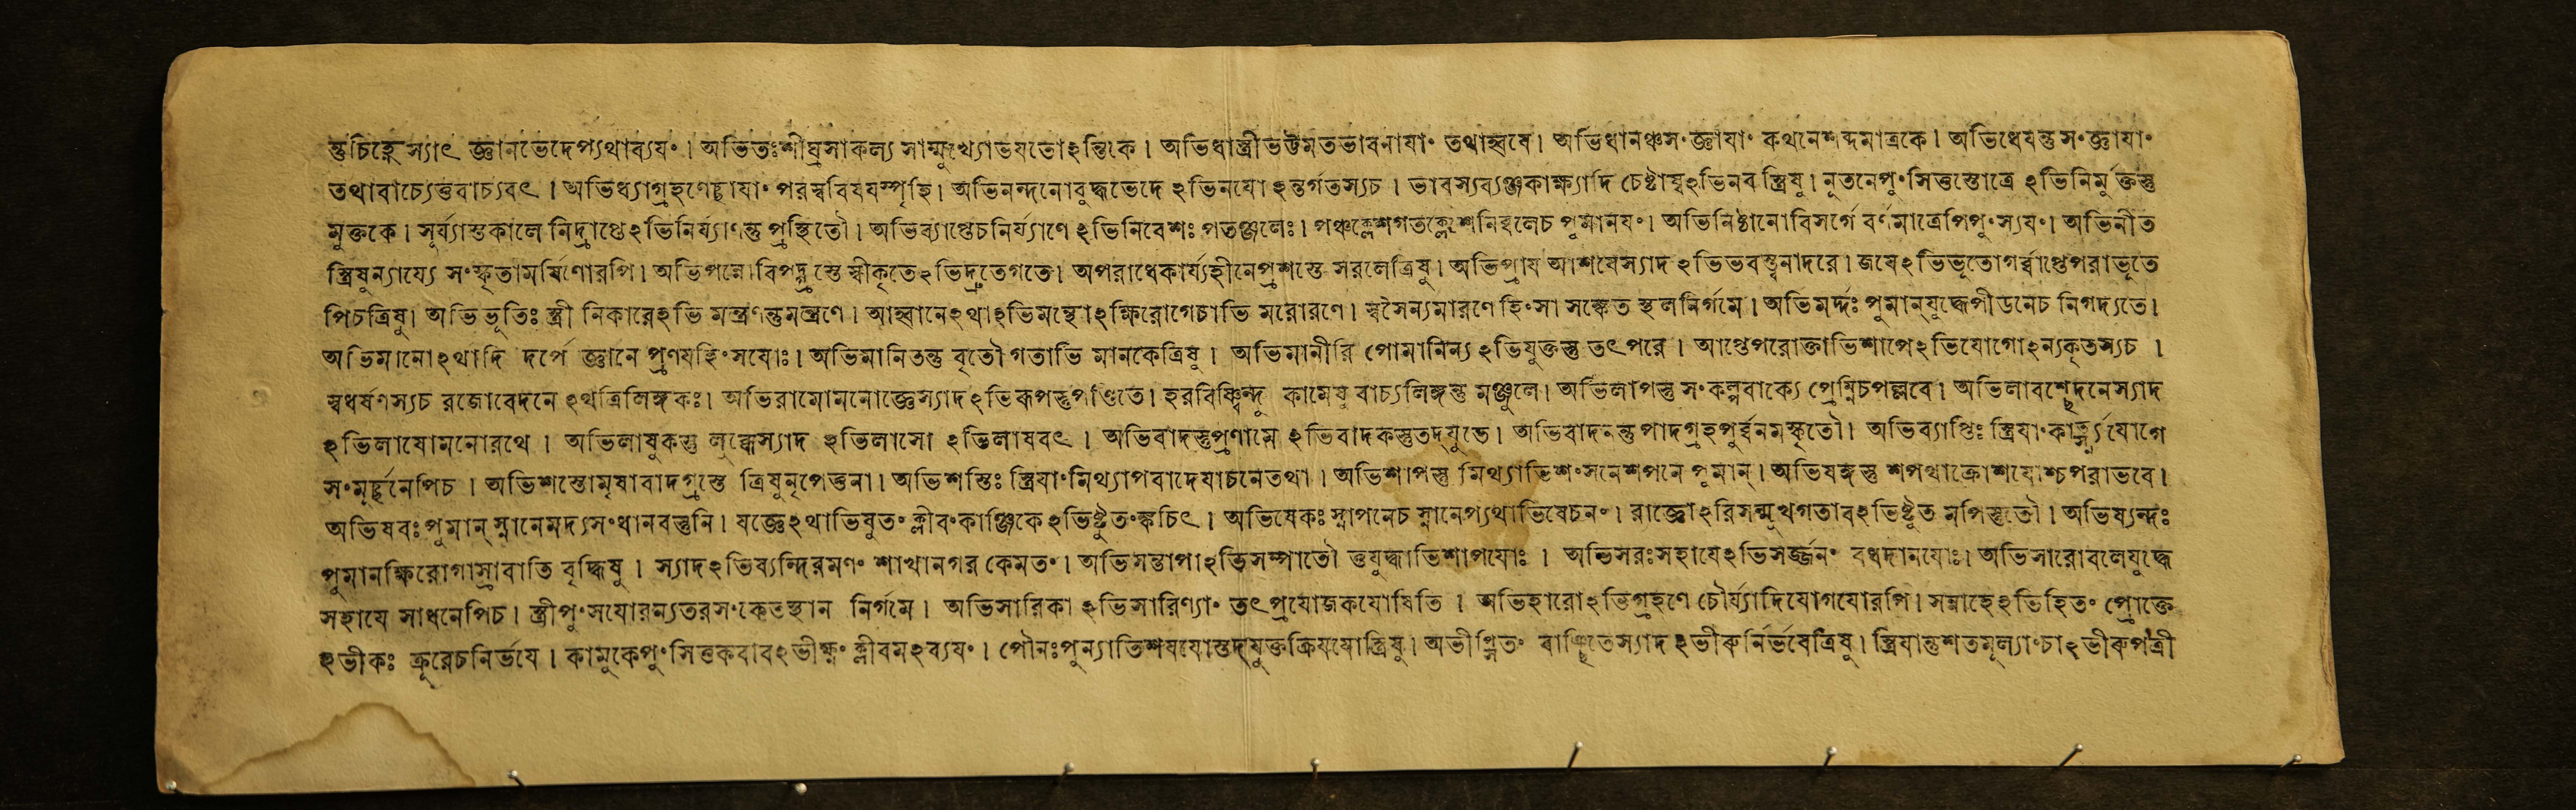 ন্তুচিহ্নেস্যাৎ জ্ঞানভেদেপ্যথাব্যয়ং। অভিতঃশীঘ্রসাকল্য সাম্মুখ্যোভয়তোঽন্তিকে। অভিধাস্ত্রীভট্টমতভাবনায়াং তথাহ্বয়ে। অভিধানঞ্চসংজ্ঞায়াং কথনেশব্দমাত্রকে। অভিধেয়ন্তুসংজ্ঞায়াং
তথাবাচ্যেত্তবাচ্যবৎ। অভিধ্যাগ্রহণেচ্ছায়াং পরস্ববিষয়স্পৃহি। অভিনন্দনোবুদ্ধভেদে ঽভিনয়ো ঽন্তর্গতস্যচ। ভাবস্যব্যঞ্জকাক্ষ্যাদি চেষ্টাস্বঽভিনবস্ত্রিষু। নূতনেপুংসিত্তস্তোত্রে ঽভিনির্মুক্তস্তু
মুক্তকে। সূর্য্যাস্তকালে নিদ্রাপ্তেঽভিনির্য্যাণন্তু প্রস্থিতৌ। অভিব্যাপ্তেচনির্য্যাণে ঽভিনিবেশঃ পতঞ্জলেঃ। পঞ্চক্লেশগতক্লেশনিশ্চলেচ পুমানয়ং। অভিনিষ্ঠানোবিসর্গে বর্ণমাত্রেপিপুংস্যয়ং। অভিনীত
স্ত্রিষুন্যায্যে সংস্কৃতামর্ষিণোরপি। অভিপন্নোবিপদ্গ্রস্তে স্বীকৃতেঽভিদ্রুতেগতে। অপরাধেকার্য্যহীনেপ্রশস্তে সরলেত্রিষু। অভিপ্রায় আশয়েস্যাদ ঽভিভবস্ত্বনাদরে। জয়েঽভিভূতোগর্ব্বাপ্তেপরাভূতে
পিচত্রিষু। অভিভূতিঃ স্ত্রী নিকারেঽভি মন্ত্রণন্তুমন্ত্রণে। আহ্বানেঽথাঽভিমন্থোঽক্ষিরোগেচাভি মরোরণে। স্বসৈন্যমারণে হিংসা সঙ্কেত স্থলনির্গমে। অভিমর্দ্দঃ পুমান্‌যুদ্ধেপীডনেচ নিগদ্যতে।
অভিমানোঽথাদি দর্পে জ্ঞানে প্রণয়হিংসয়োঃ। অভিমানিতন্তু বৃতৌ গতাভি মানকেত্রিষু। অভিমানীরি পোমানিন্য ঽভিযুক্তস্তু তৎপরে। আপ্তেপরোক্তাভিশাপেঽভিযোগোঽন্যকৃতস্যচ।
স্বধর্ষণস্যচ রজোবেদনে ঽথত্রিলিঙ্গকঃ। অভিরামোমনোজ্ঞেস্যাদঽভিরূপস্তুপণ্ডিতে। হরবিষ্ণিন্দু কামেষু বাচ্যলিঙ্গন্তু মঞ্জুলে। অভিলাপস্তু সংকল্পবাক্যে প্রেম্নিচপল্লবে। অভিলাবশ্ছেদনেস্যাদ
ঽভিলাষোমনোরথে। অভিলাষুকস্তু লুব্ধেস্যাদ ঽভিলাসো ঽভিলাষবৎ। অভিবাদস্তুপ্রণামে ঽভিবাদকস্তুতদ্‌যুতে। অভিবাদনন্তু পাদগ্রহপূর্ব্বনমস্কৃতৌ। অভিব্যাপ্তিঃ স্ত্রিয়াংকার্ৎস্ন্যযোগে
সংমূর্ছনেপিচ। অভিশস্তোমৃষাবাদগ্রস্তে ত্রিষুনৃপেত্তনা। অভিশস্তিঃ স্ত্রিয়াংমিথ্যাপবাদেযাচনেতথা। অভিশাপস্তু মিথ্যাভিশংসনেশপনে পুমান্। অভিষঙ্গস্তু শপথাক্রোশয়োশ্চপরাভবে।
অভিষবঃপুমান্ স্নানেমদ্যসংধানবস্তুনি। যজ্ঞেঽথাভিষুতং ক্লীবংকাঞ্জিকেঽভিষ্টুতংক্কচিৎ। অভিষেকঃ স্নাপনেচ স্নানেপ্যথাভিষেচনং। রাজ্ঞোঽরিসন্মুখগতাবঽভিষ্টুত মপিস্তুতৌ। অভিষ্যন্দঃ
পুমানক্ষিরোগাস্রাবাতি বৃদ্ধিষু। স্যাদঽভিষ্যন্দিরমণং শাখানগর কেমতং। অভিসন্তাপাঽভিসম্পাতৌ ত্তযুদ্ধাভিশাপয়োঃ। অভিসরঃসহায়েঽভিসর্জ্জনং বধদানয়োঃ। অভিসারোবলেযুদ্ধে
সহায়ে সাধনেপিচ। স্ত্রীপুংসয়োরন্যতরসংকেতস্থান নির্গমে। অভিসারিকা ঽভিসারিণ্যাং তৎপ্রয়োজকয়োষিতি। অভিহারোঽভিগ্রহণে চৌর্য্যাদিযোগয়োরপি। সন্নাহেঽভিহিতং প্রোক্তে
ঽভীকঃ ক্রূরেচনির্ভয়ে। কামুকেপুংসিত্তকবাবঽভীক্ষ্ণং ক্লীবমঽব্যয়ং। পৌনঃপুন্যাতিশয়য়োস্তদ্‌যুক্তক্রিয়য়োস্ত্রিষু। অভীপ্সিতং বাঞ্ছিতেস্যাদ ঽভীরুর্নির্ভয়েত্রিষু। স্ত্রিয়ান্তুশতমূল্যাংচাঽভীরুপত্রী